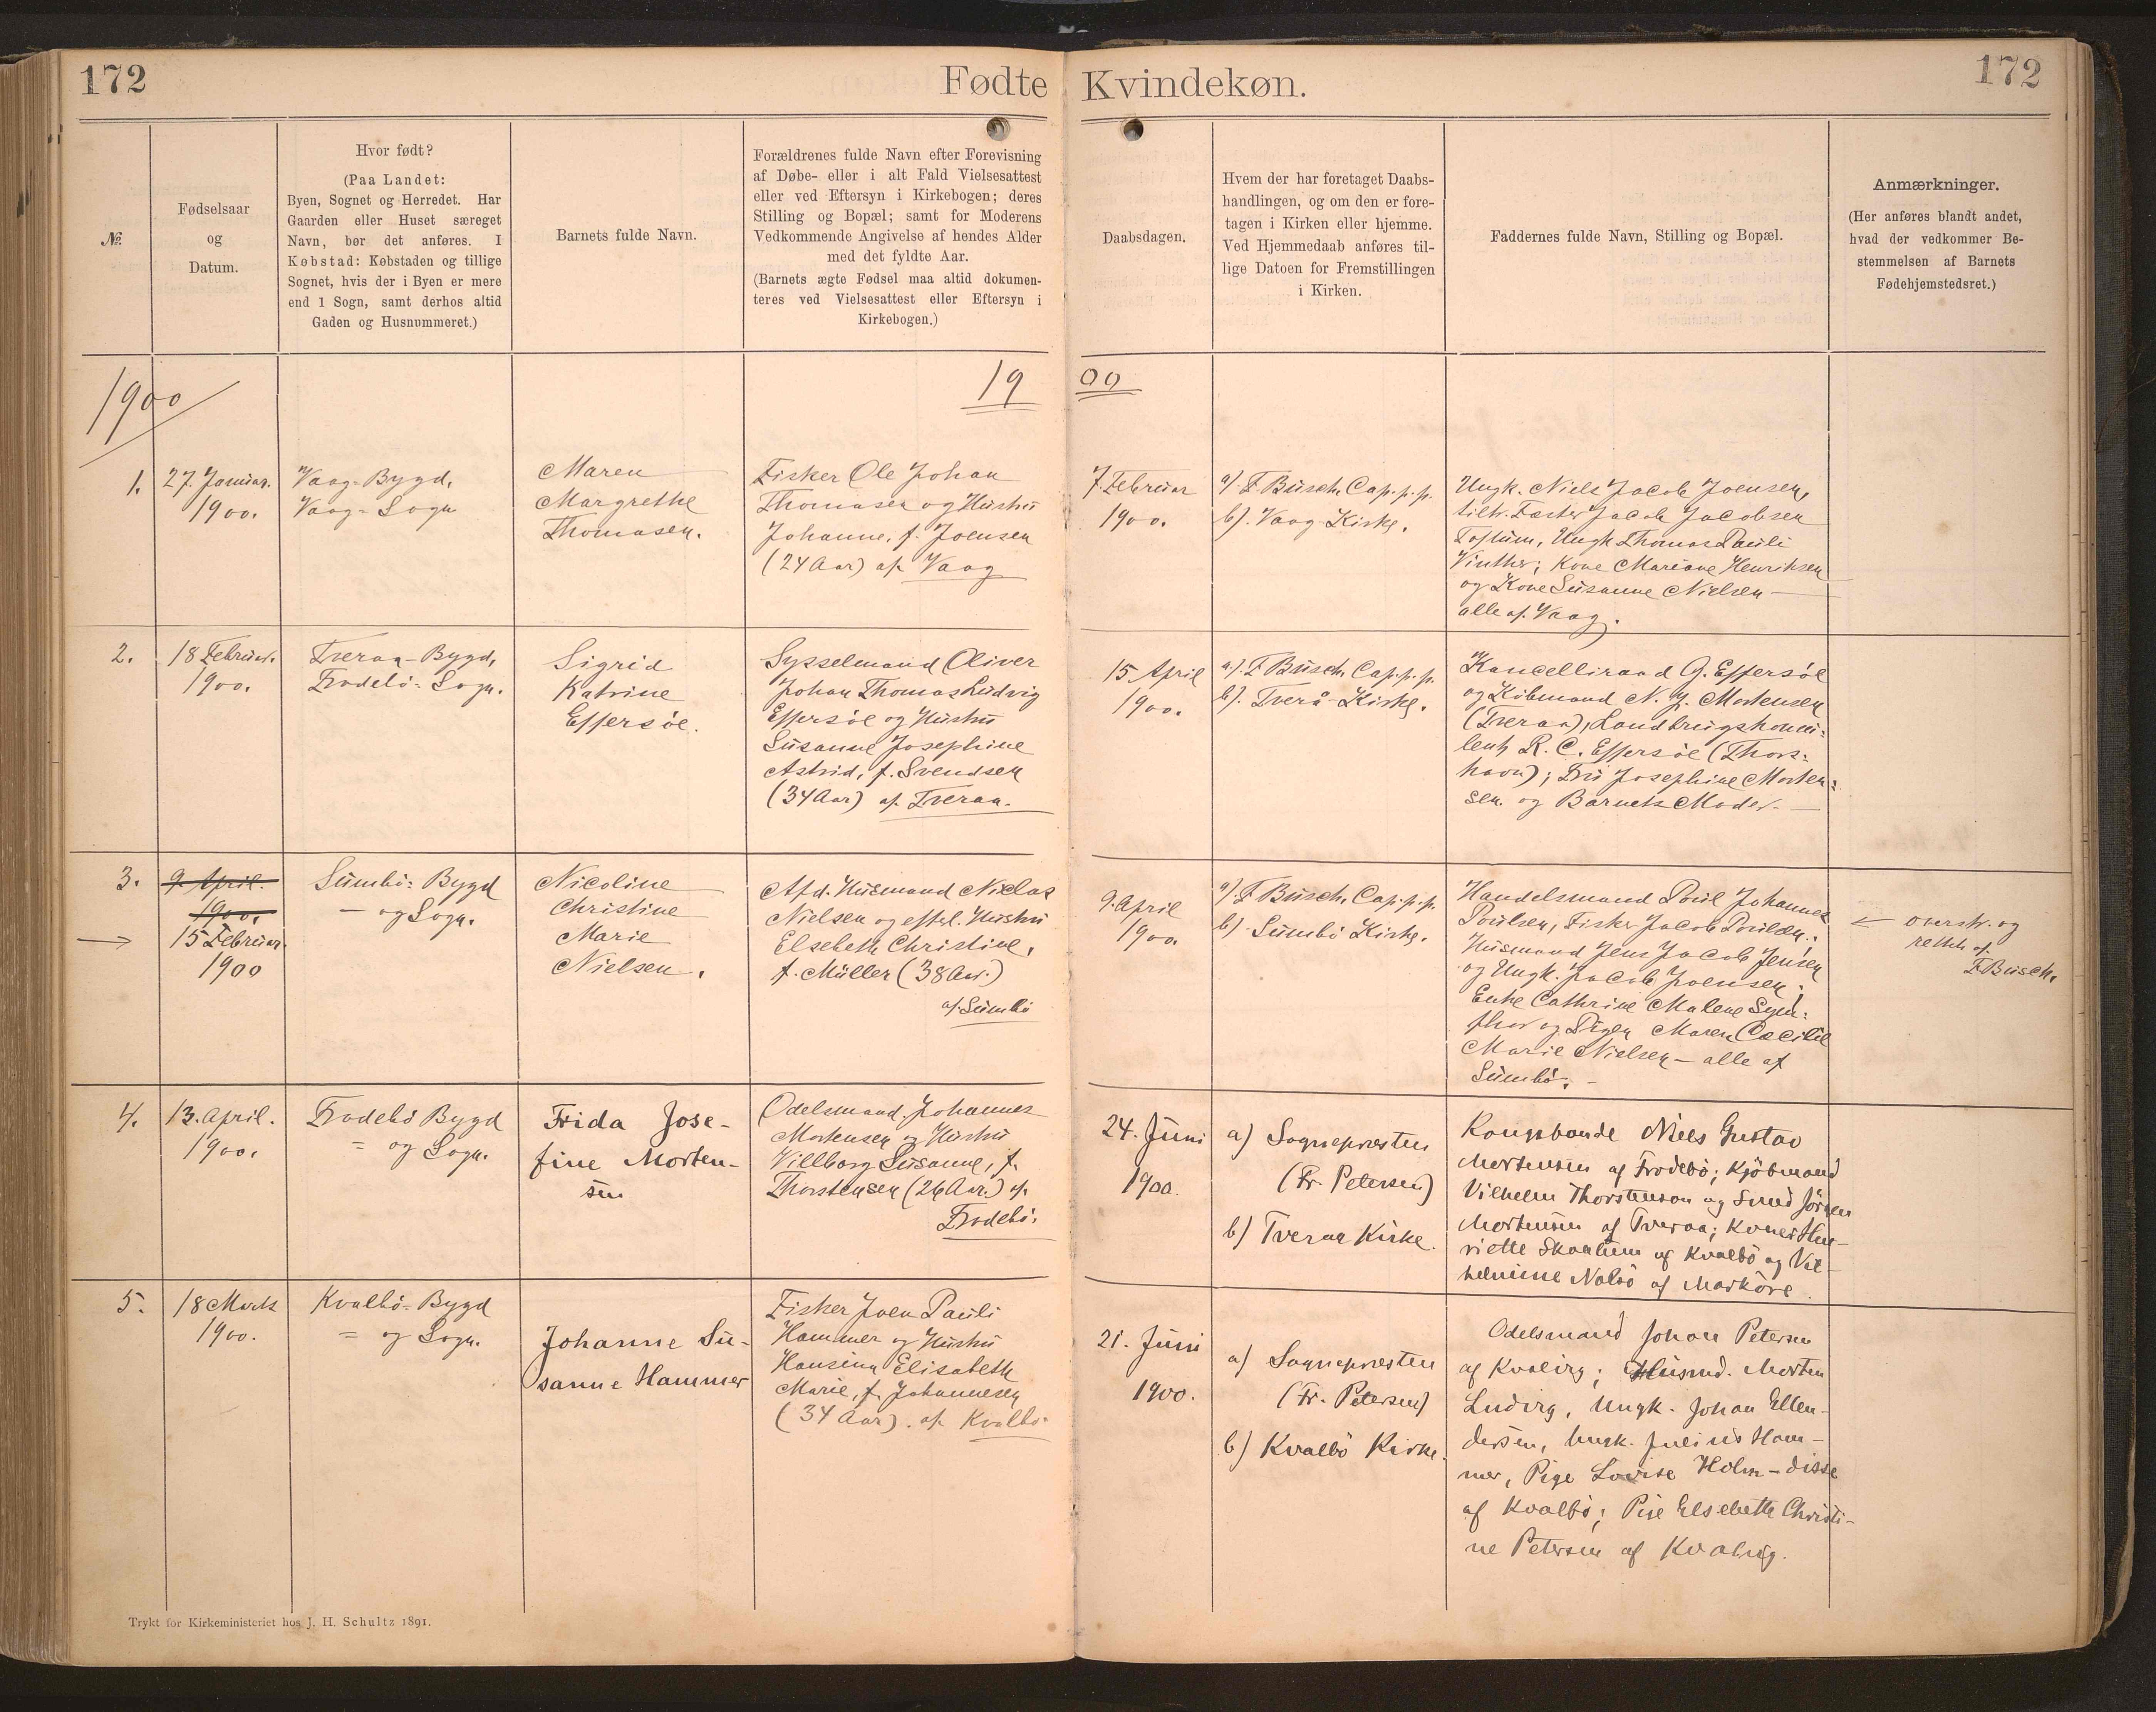 172
Fødte
Kvindekøn.
172
№
Fødselsaar
og
Datum.
Hvor født?
(Paa Landet:
Byen, Sognet og Herredet. Har
Gaarden eller Huset særeget
Navn, bør det anføres. I
Købstad: Købstaden og tillige
Sognet, hvis der i Byen er mere
end 1 Sogn, samt derhos altid
Gaden og Husnummeret.)
Barnets fulde Navn.
Forældrenes fulde Navn efter Forevisning
af Døbe- eller i alt Fald Vielsesattest
eller ved Eftersyn i Kirkebogen; deres
Stilling og Bopæl; samt for Moderens
Vedkommende Angivelse af hendes Alder
med det fyldte Aar.
(Barnets ægte Fødsel maa altid dokumen-
teres ved Vielsesattest eller Eftersyn i
Kirkebogen.)
Daabsdagen.
Hvem der har foretaget Daabs-
handlingen, og om den er fore-
tagen i Kirken eller hjemme.
Ved Hjemmedaab anføres til-
lige Datoen for Fremstillingen
i Kirken.
Faddernes fulde Navn, Stilling og Bopæl.
Anmærkninger.
(Her anføres blandt andet,
hvad der vedkommer Be-
stemmelsen af Barnets
Fødehjemstedsret.)
1900
19
00
1.
27. Januar.
1900.
Vaag-Bygd,
Vaag-Sogn
Maren
Margrethe
Thomasen.
Fisker Ole Johan
Thomasen og Hustru
Johanne, f. Joensen
(24 Aar) af Vaag
7. Februar
1900.
a). F. Busch, Cap. p. p.
b). Vaag-Kirke.
Ungk. Niels Jacob Joensen,
Jacob Jacobsen
Ungk Thomas Pauli
Vinther; Kone Mariane Henriksen
og Kone Susanne Nielsen —
alle af Vaag.
2.
18 Februar.
1900.
Tveraa-Bygd,
Frodebö-Sogn.
Sigrid
Katrine
Effersöe.
Sysselmand Oliver
Johan Thomas Ludvig
Effersöe og Hustru
Susanne Josephine
Astrid, f. Svendsen
(34 Aar) af Tveraa.
15 April
1900.
a). F. Busch, Cap. p. p.
b). Tverå-Kirke.
Kancelliraad G. Effersöe
og Köbmand N. J. Mortensen
(Tveraa), Landbrugskonsu-
lent R. C. Effersöe (Thors-
havn); Fru Josephine Morten-
sen og Barnets Moder. —
3.
9. April.
1900.
→ 15 Februar.
1900
Sumbö-Bygd
— og Sogn.
Nicoline
Christine
Marie
Nielsen.
Afd. Husmand Niclas
Nielsen og eftel. Hustru
Elsebeth Christine,
f. Müller (38 Aar.)
af Sumbö
9. April
1900.
a). F Busch, Cap. p. p.
b) Sumbö Kirke.
Handelsmand Poul Johannes
Poulsen, Fisker Jacob Poulsen,
Husmand Jens Jacob Jensen
og Ungk. Jacob Joensen;
Enke Cathrine Malene Sym-
phor og Pigen Maren Cæcilie
Marie Nielsen — alle af
Sumbö. —
← overstr. og
rettet af
F. Busch.
4.
13. April.
1900.
Frodebö Bygd
= og Sogn.
Frida Jose-
fine Morten-
sen
Odelsmand Johannes
Mortensen og Hustru
Villborg Susanne, f.
Thorstensen (26 Aar.) af
Frodebö.
24. Juni
1900.
a) Sognepræsten
(Fr. Petersen)
b) Tveraa Kirke.
Kongsbonde Niels Gustav
Mortensen af Frodebö; Kjöbmand
Vilhelm Thorstenson og Jörgen
Mortensen af Tveraa; Koner Hen-
riette Skaalum af Kvalbö og Vil-
helmine Nolsö af Marköre.
5.
18 Marts
1900.
Kvalbö-Bygd
= og Sogn.
Johanne Su-
sanne Hammer
Fisker Joen Pauli
Hammer og Hustru
Hansina Elisabeth
Marie, f. Johannesen
(34 Aar). af Kvalbö.
21. Juni
1900.
a) Sognepræsten
(Fr. Petersen)
b) Kvalbö Kirke.
Odelsmand Johan Petersen
af Kvalvig; Husmd. Morten
Ludvig, Ungk. Johan Ellen-
dersen, Ungk. Julius Ham-
mer, Pige Lovise Holm — disse
af Kvalbö; Pige Elsebeth Christi-
ne Petersen af Kvalvig.
Trykt for Kirkeministeriet hos J. H. Schultz 1891.